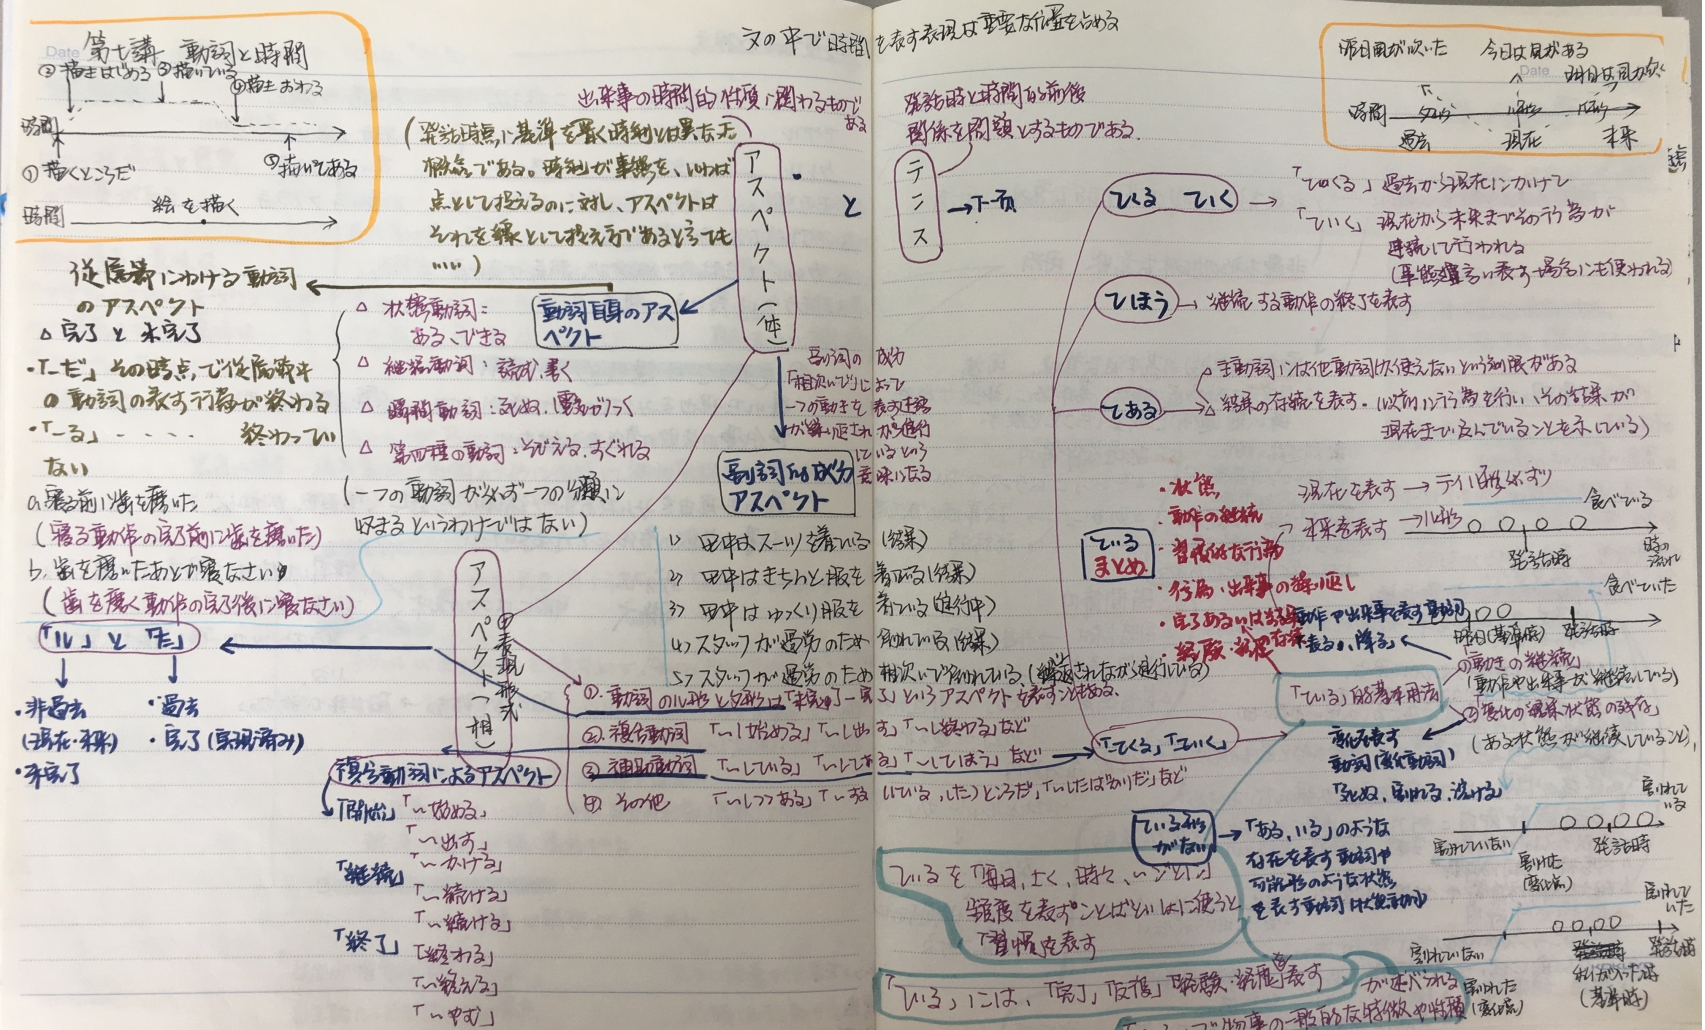 第七講 動詞と時間
②描きはじめる ③描いている
④描きおわる
時間
①描くところだ
⑤描いてある
時間 絵を描く
文の中で時間を表す表現は重要な位置を占める
昨日風が吹いた 今日は風がある
明日は風が吹く
時間 タ形 ル形 ル形
過去 現在 未来
出来事の時間的性質に関わるものである
(発話時点に基準を置く時制とは異なった
概念である。時制が事態を、いわば
点として捉えるのに対し、アスペクトは
それを線として捉え方であると言っても
……)
アスペクト(体)
と
テンス
→下一页
発話時と時間的前後
関係を問題とするものである.
従属節における動詞
のアスペクト
△完了と未完了
・「-だ」その時点で従属節中
の動詞の表す行為が終わる
・「-る」- - - - 終わってい
ない
a.寝る前に歯を磨いた
(寝る動作の完了前に歯を磨いた)
b.歯を磨いたあとで寝なさい
(歯を磨く動作の完了後に寝なさい)
「ル」と「た」
・非過去
(現在・未来)
・未完了
・過去
・完了(実現済み)
動詞自身のアスペクト
△状態動詞:
ある、できる
△継続動詞:読む、書く
△瞬間動詞:死ぬ、(電気が)つく
△第四種の動詞:そびえる、すぐれる
(一つの動詞が必ず一つの分類に
収まるというわけではない)
副詞の成分
「相次いで」によって
一つの動きを表す述語
が繰り返されながら進行
しているという
意味になる
副詞的成分
アスペクト
1> 田中はスーツを着ている(結果)
2> 田中はきちんと服を着ている(結果)
3> 田中はゆっくり服を着ている(進行中)
4> スタッフが過労のため倒れている(結果)
5> スタッフが過労のため相次いで倒れている(繰り返されながら進行している)
アスペクト(相)
の表現形式
①.動詞のル形とタ形は「未完了-完了」というアスペクトを表すこともある.
②.複合動詞「~し始める」「~し出す」「~し終わる」など
③補助動詞「~している」「~してある」「~してしまう」など
④その他「~しつつある」「~する(している、した)ところだ」「~したばかりだ」など
複合動詞によるアスペクト
「開始」「~始める」
「~出す」
「~かける」
「継続」
「~続ける」
「~続ける」
「終了」
「終わる」
「~終える」
「~やむ」
ている ていく
「てくる」過去から現在にかけて
「ていく」現在から未来までその行為が
連続して行われる
てほう→継続する動作の終了を表す
てある
△主動詞には他動詞しか使えないという制限がある
△結果の存続を表す.(以前に行為を行い、その結果が
現在まで及んでいることを示している)
ている
まとめ
・状態
・動作の継続
・習慣的な行為
・行為・出来事の繰り返し
・経験・経歴
現在を表す→テイル形必ずツ
未来を表す→ル形
食べている
発話時
時の流れ
食べていた
昨日(基準時) 発話時
動作や出来事を表す動詞
「ている」的基本用法
の動きの継続」
(動作や出来事が継続している)
②「変化の結果状態の残存」
(ある状態が継続していること)
変化を表す
動詞(変化動詞)
「死ぬ、割れる、溶ける」
「てくる」「ていく」
ている形
がない
→「ある、いる」のような
存在を表す動詞や
可能形のような状態
を表す動詞(状態動詞)
ているを「毎日、よく、時々、~ごとに」
頻度を表すことばといっしょに使うと
「習慣」を表す
「ている」には、「完了」「反復」「経験・経歴」を表す
が述べられる
割れている
割れていない
割れた
(変化点)
発話時
割れていた
割れていない
割れた
(変化点)
(基準時)
発話時